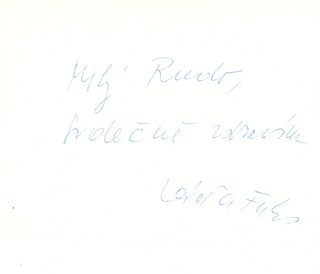 Milý Rudo,
srdečně zdravím
Laďa Fuks